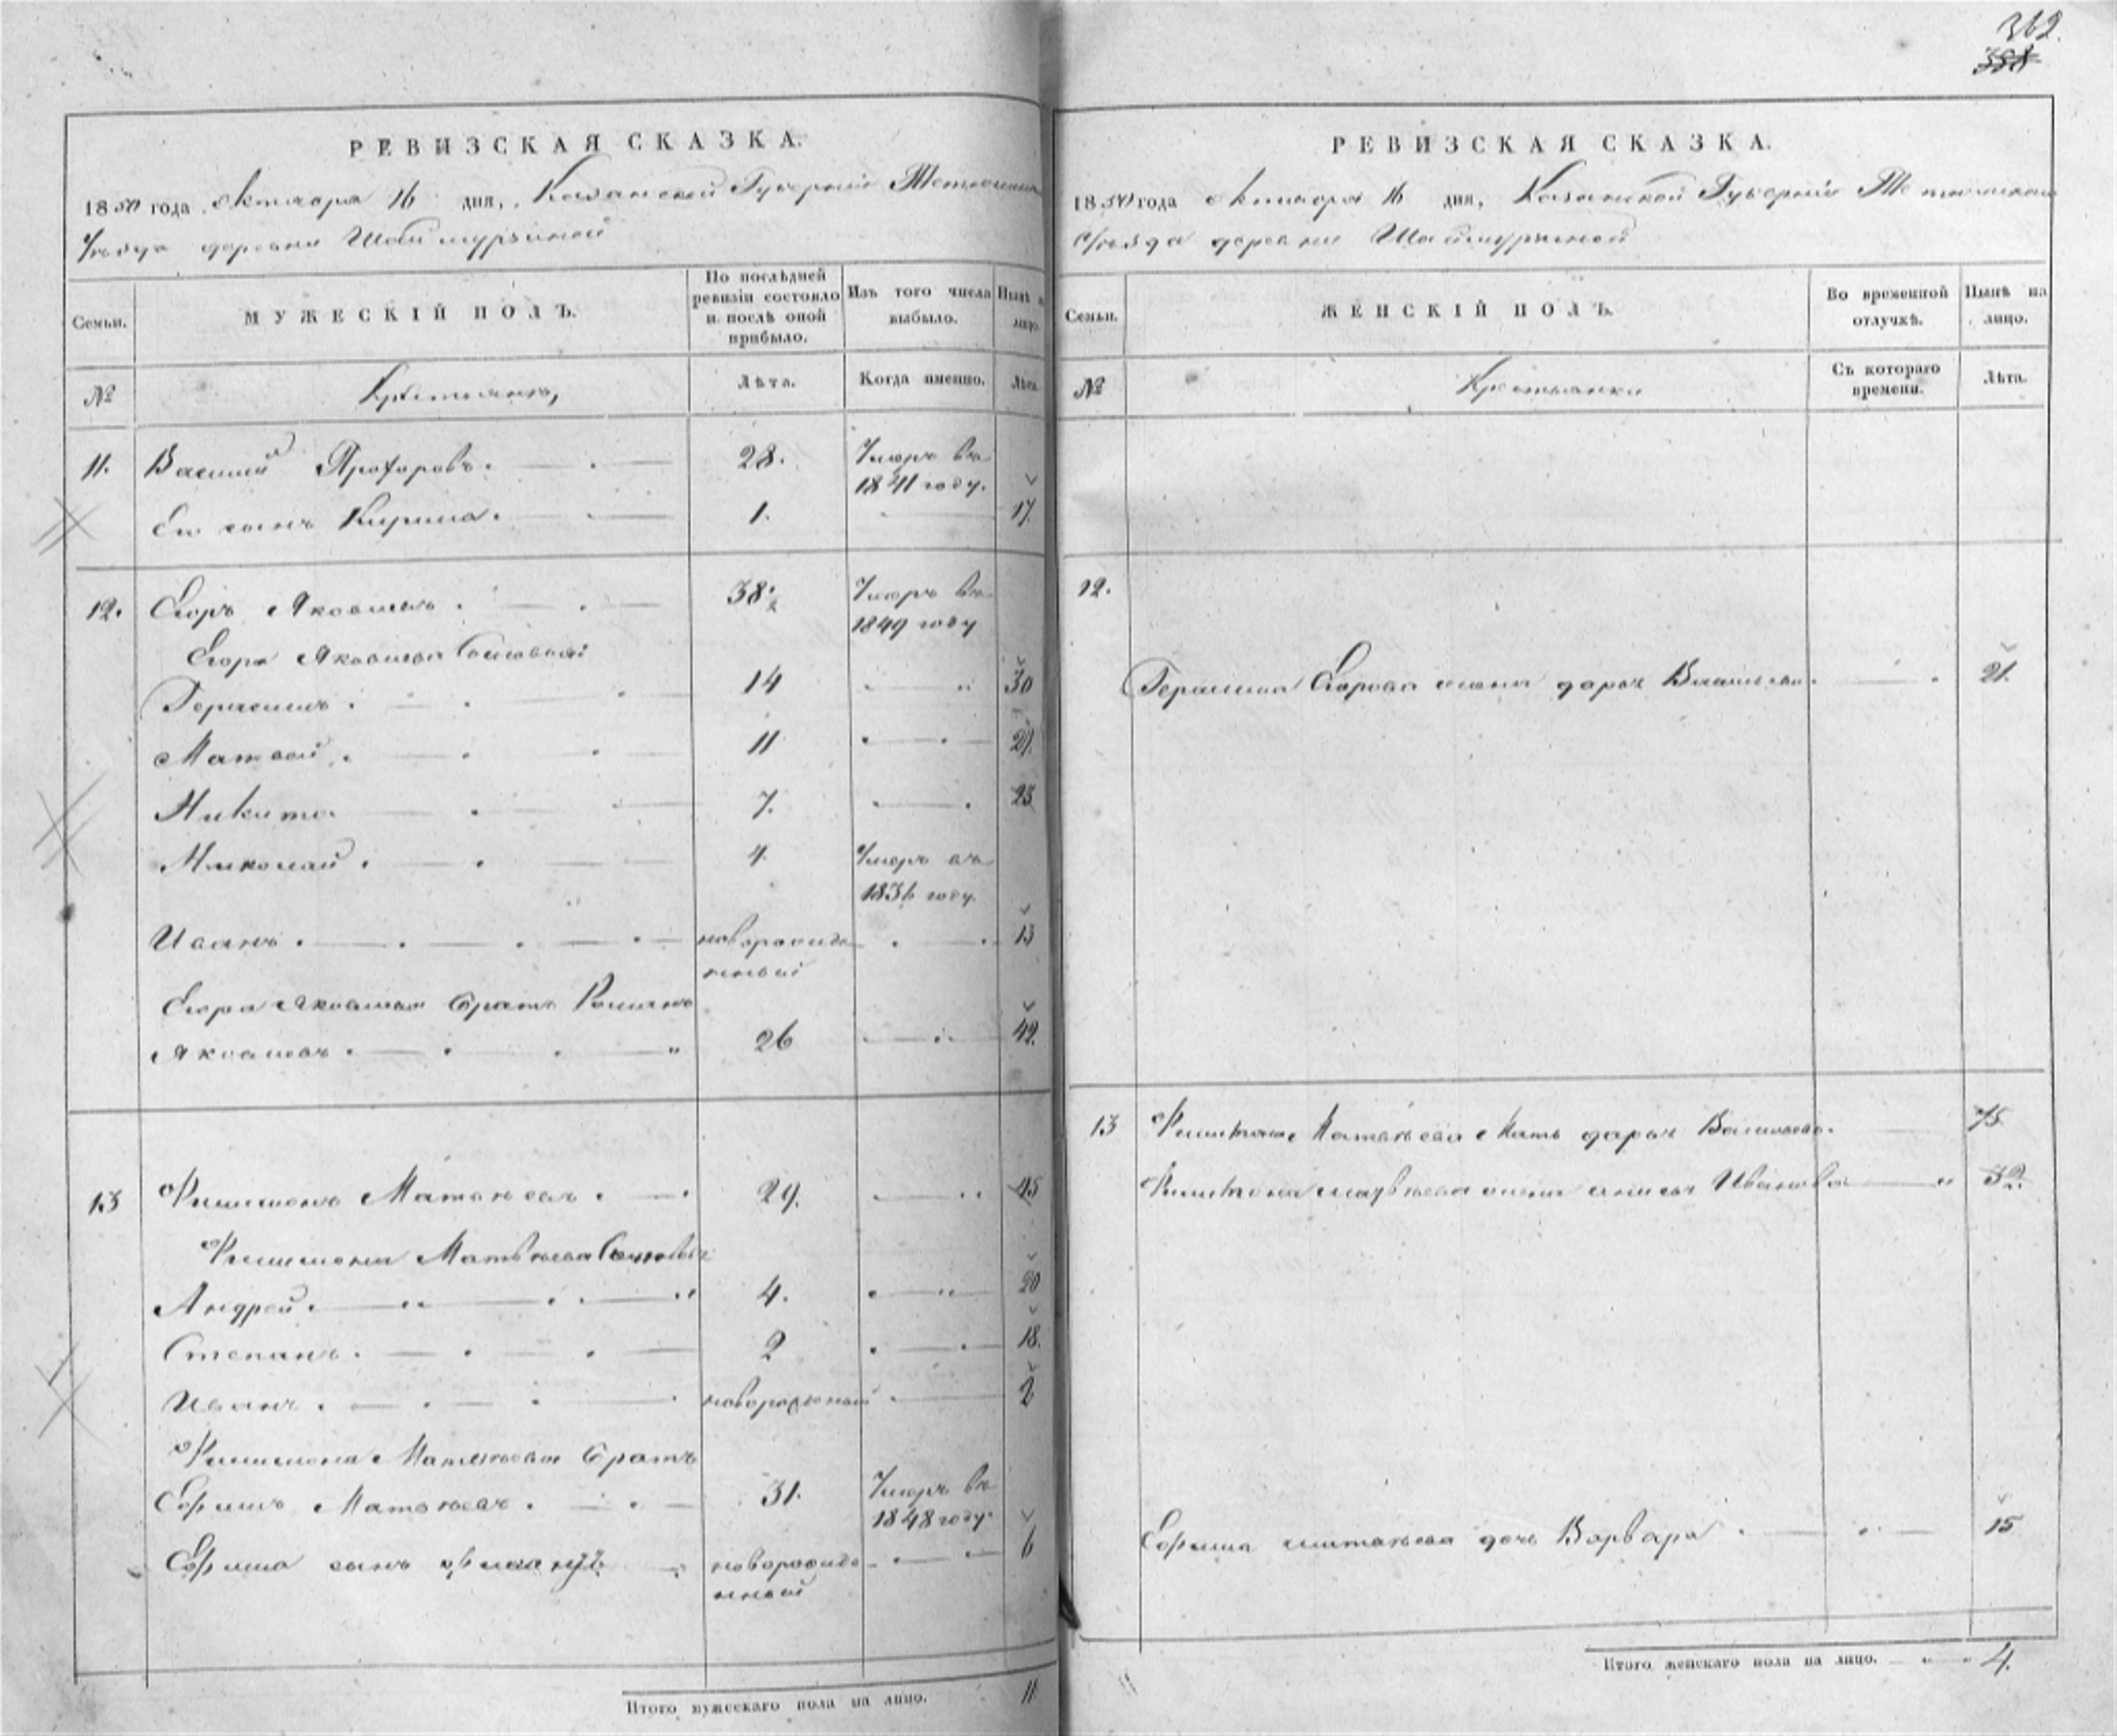 362.
358
РЕВИЗСКАЯ СКАЗКА.
1850 года Октября 16 дня, Казанской Губерніи Тетюшскаго
Уѣзда деревни Шаймурзиной
Семьи.
МУЖЕСКІЙ ПОЛЪ.
По послѣдней ревизіи состояло и послѣ оной прибыло.
Изъ того числа выбыло.
Нынѣ на лицо.
№
Крестьянъ,
Лѣта.
Когда именно.
Лѣта.
11. Василий Прохоровъ. 28. Умеръ въ
1841 году.
Его сынъ Кирила. 1. 17
12. Егоръ Яковлевъ. 38½ Умеръ въ
1849 году
Егора Яковлева Сыновья:
Герасимъ. 14 30
Матвей. 11 27
Никита. 7. 23
Николай. 4 Умеръ въ
1836 году
Иванъ. новорожде
нный 13
Егора Яковлева братъ Романъ
Яковлевъ. 26 42
13 Филимонъ Матвѣевъ. 29. 45
Филимона Матвѣева Сыновья
Андрей. 4. 20
Степанъ. 2 18.
Иванъ. новорожденный 2
Филимона Матвѣева братъ
Ефимъ Матвѣевъ. 31. Умеръ въ
1848 году.
Ефима сынъ новорожде
нный 6
Итого мужескаго пола на лицо. 11
РЕВИЗСКАЯ СКАЗКА.
1850 года Октября 16 дня, Казанской Губерніи Тетюшскаго
Уѣзда деревни Шаймурзиной
Семьи.
ЖЕНСКІЙ ПОЛЪ.
Во временной отлучкѣ.
Нынѣ на лицо.
№
Крестьянки
Съ котораго времени.
Лѣта.
12.
Герасима Егорова жена дарья Васильева. 21.
13 Филимона Матвѣева Мать дарья Васильева. 75
Филимона матвѣева жена анисья Иванова 32.
Ефима матвѣева дочь Варвара 15
Итого женскаго пола на лицо. 4.